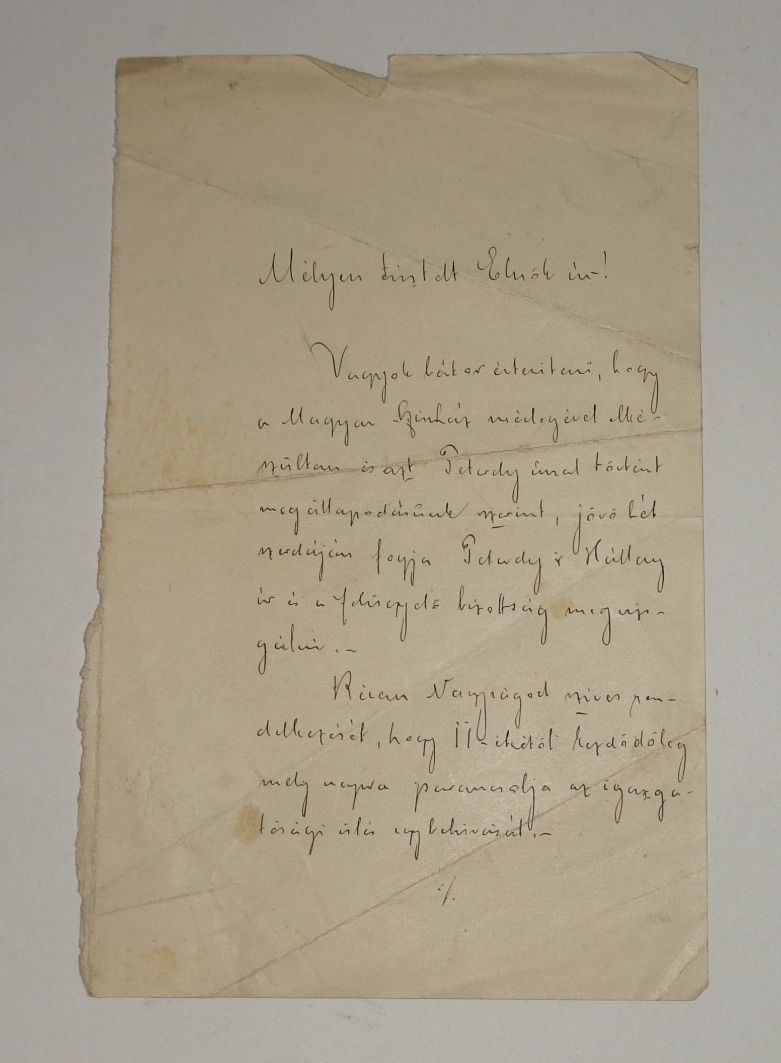 Mélyen tisztelt Elnök úr!
Vagyok bátor értesíteni, hogy
a Magyar Színház mérlegével elké-
szültem és azt Peterdy úrral történt
megállapodásunk szerint, jövő hét
szerdáján fogja Peterdy és Hállay
úr és a felügyelő bizottság megvizs-
gálni.-
Kérem Nagyságod szíves ren-
delkezését, hogy 11-ikétől kezdődőleg
mely napra parancsolja az igazga-
tósági ülés egybehívását.-
./.